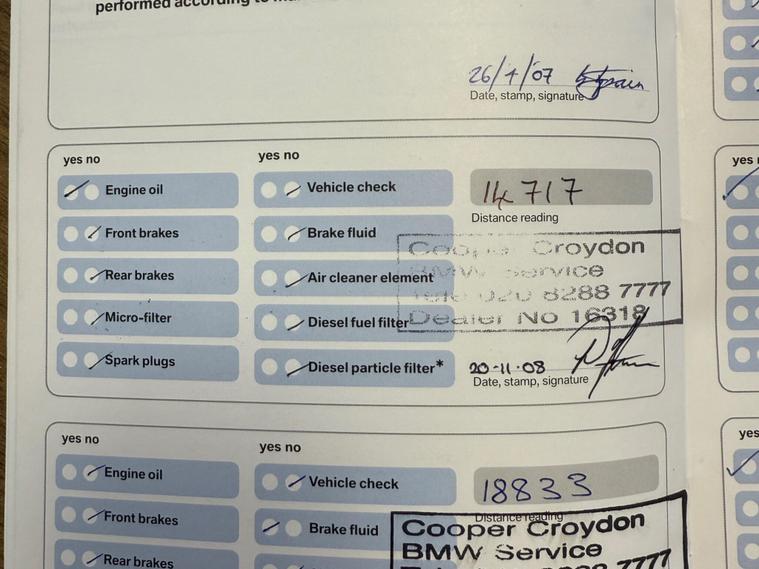 performed according to
26/4/07
Date, stamp, signature
yes no
yes no
Engine oil
Vehicle check
14717
Distance reading
Front brakes
Brake fluid
Cooper Croydon
BMW Service
Rear brakes
Air cleaner element
Tele 020 8288 7777
Micro-filter
Diesel fuel filter
Dealer No 16318
Spark plugs
Diesel particle filter*
20-11-08
Date, stamp, signature
yes no
yes no
Engine oil
Vehicle check
18833
Distance reading
Front brakes
Brake fluid
Cooper Croydon
BMW Service
Rear brakes
7777
yes
yes